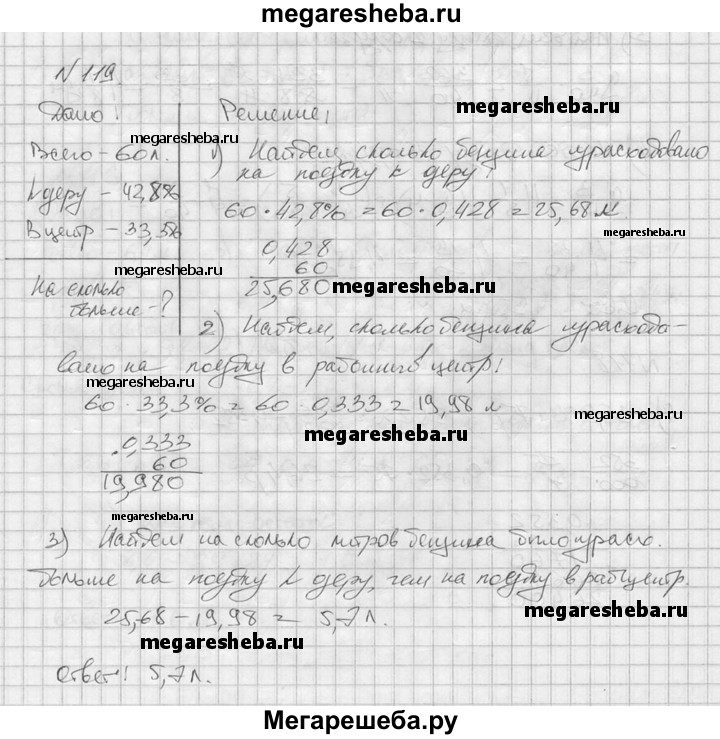 megaresheba.ru
N 119.
Дано: Решение:
megaresheba.ru
megaresheba.ru
Всего – 60 л. 1) Найдем, сколько бензина израсходовано
на поездку к деду:
К деду – 42,8%
60 · 42,8% = 60 · 0,428 = 25,68 л
В центр – 33,3%
0,428
60
megaresheba.ru
25,680
megaresheba.ru
На сколько
больше – ?
2) Найдем, сколько бензина израсходо-
вано на поездку в районный центр:
megaresheba.ru
60 · 33,3% = 60 · 0,333 = 19,98 л
megaresheba.ru
megaresheba.ru
0,333
60
19,980
megaresheba.ru
3) Найдем на сколько литров бензина было израсх.
больше на поездку к деду, чем на поездку в рай центр.
25,68 – 19,98 = 5,7 л.
megaresheba.ru
megaresheba.ru
Ответ: 5,7 л.
Мегарешеба.ру